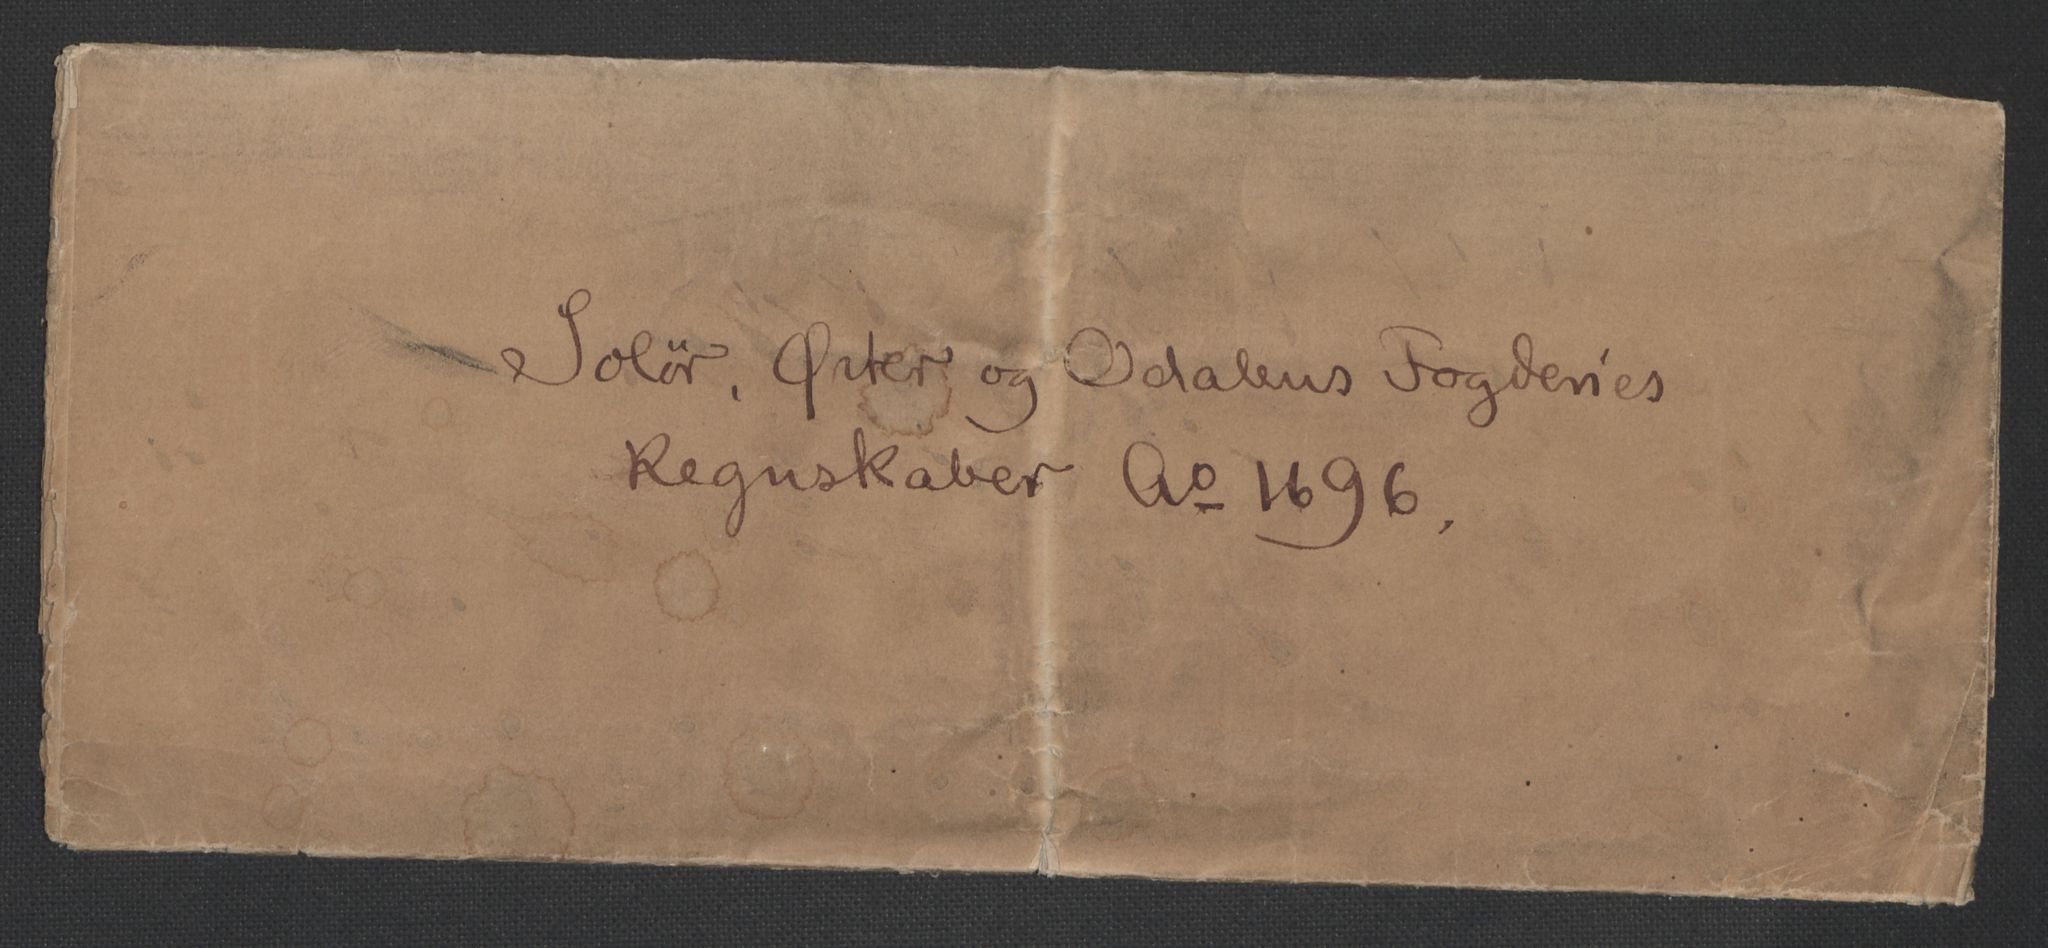 Solör, Øster og Odalens Fogderies
Regnskaber Ao 1696.